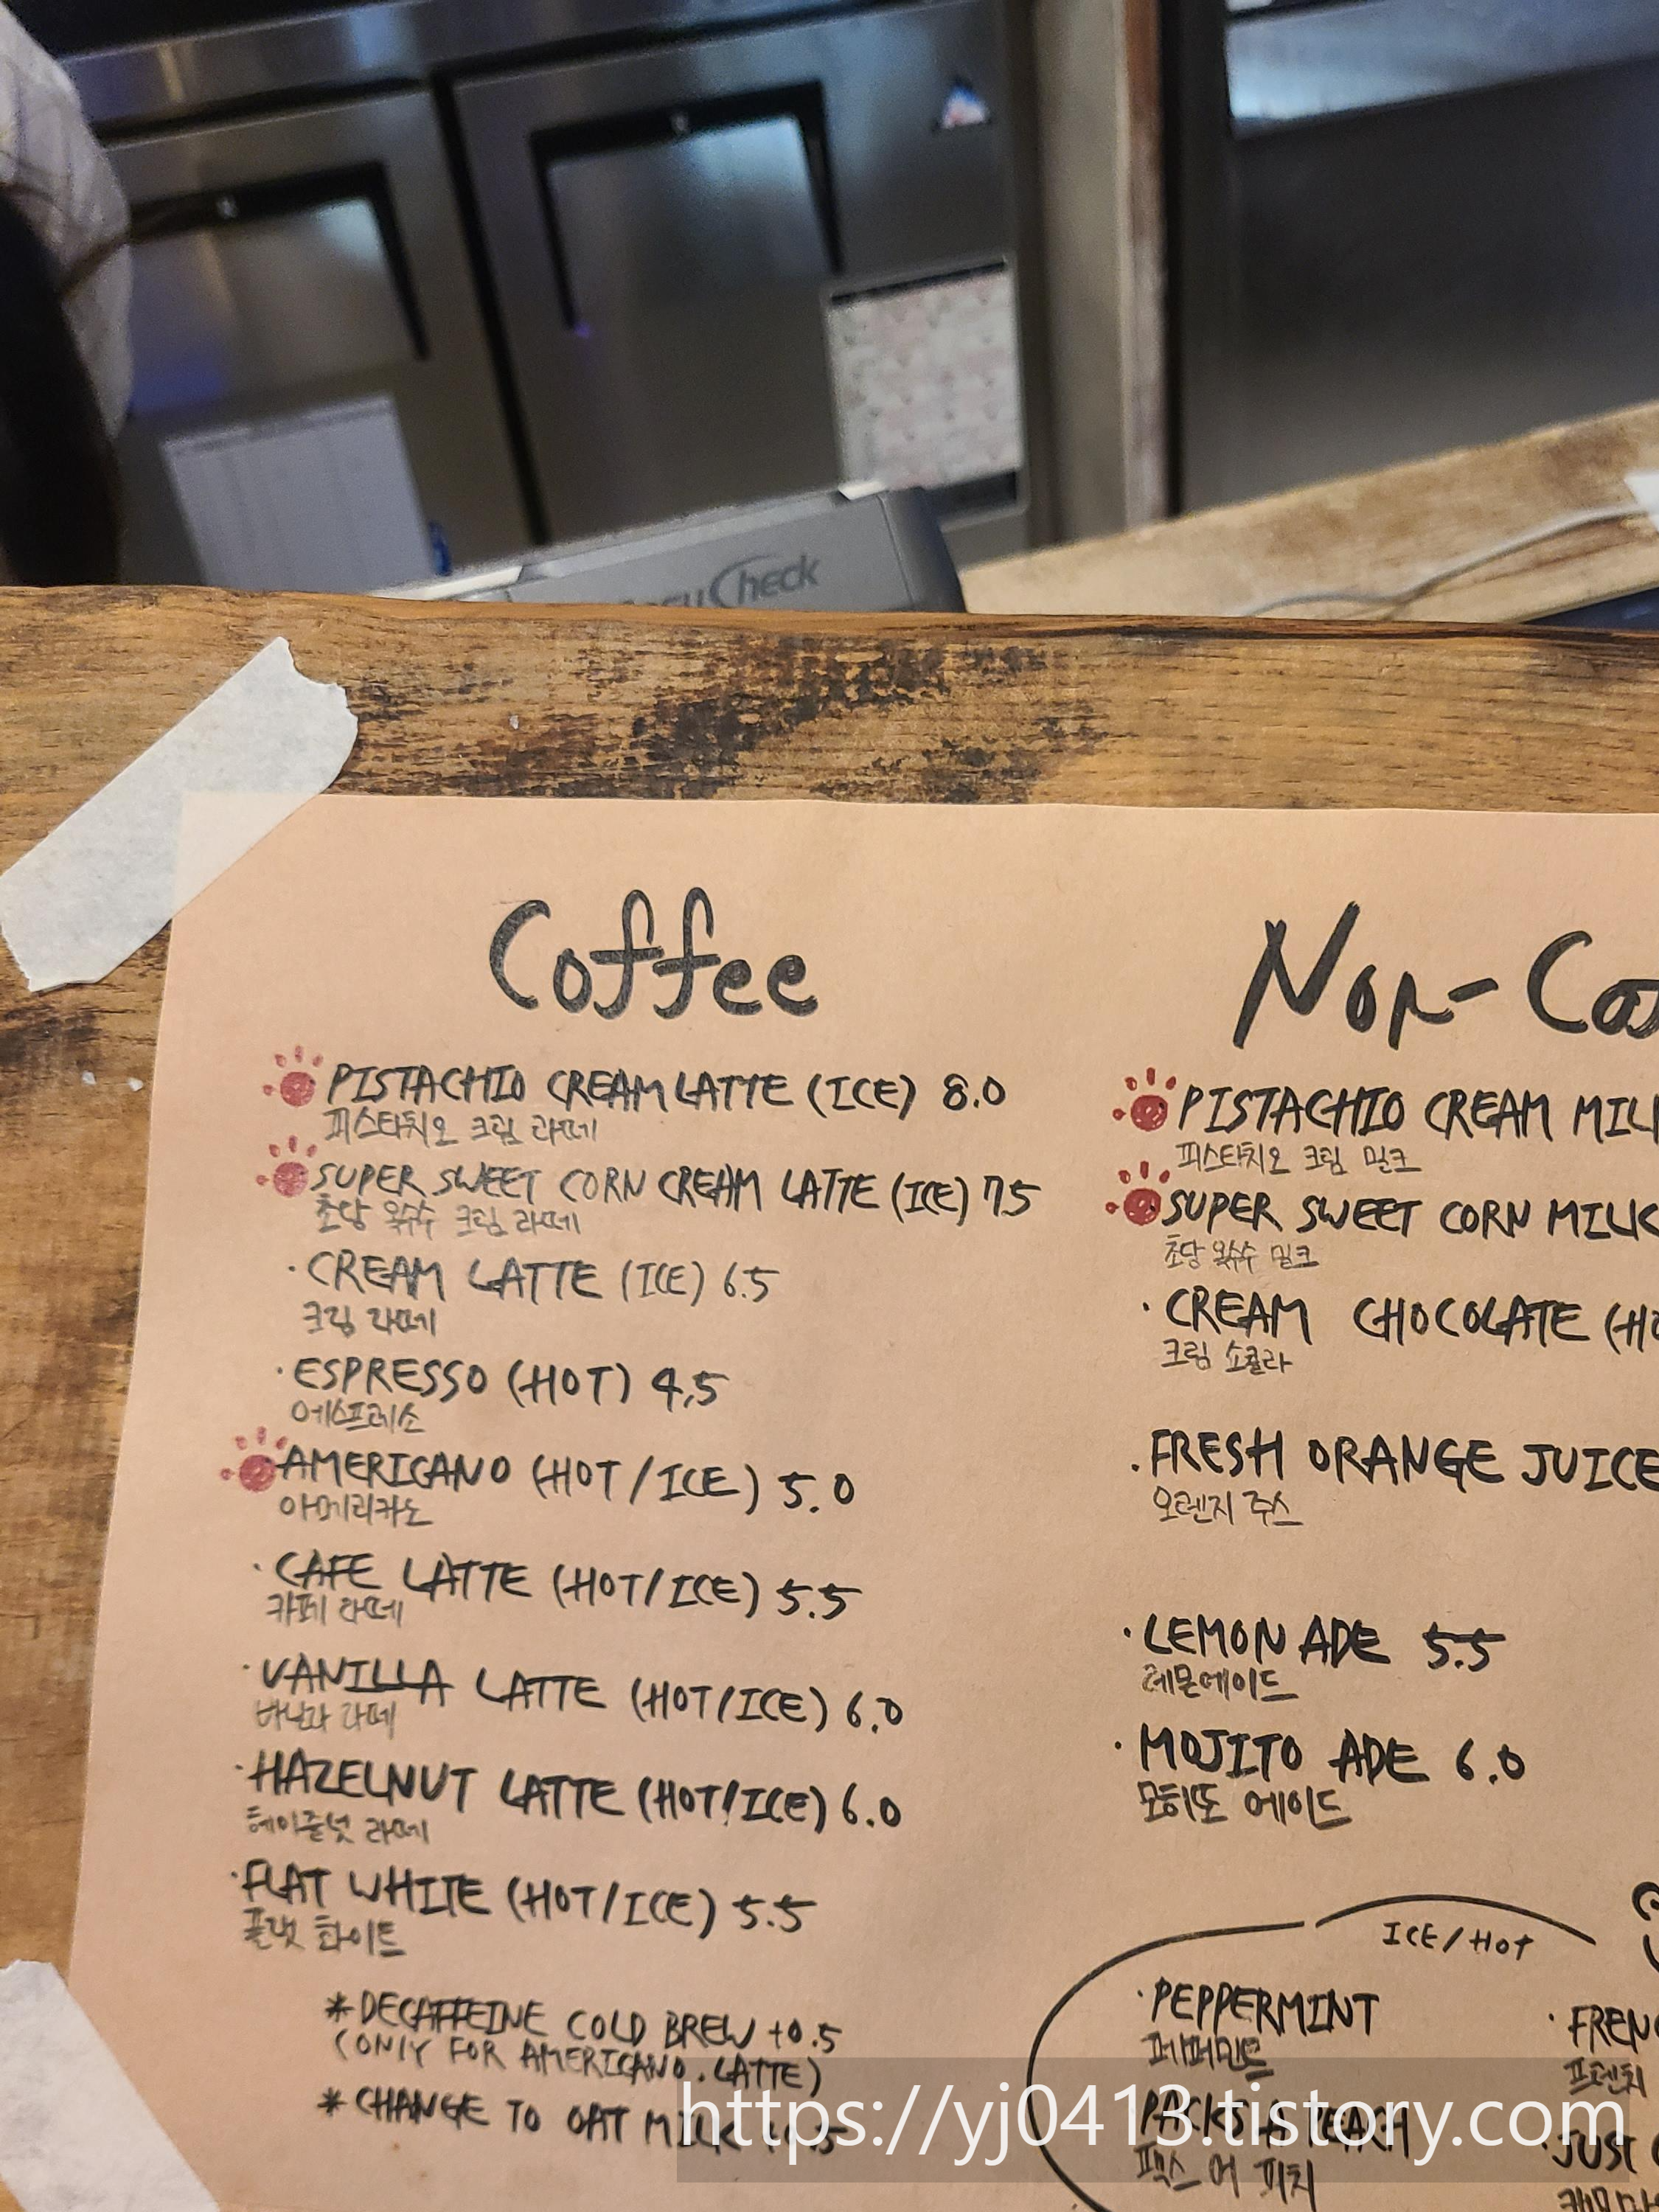 Check
Coffee
PISTACHIO CREAM LATTE (ICE) 8.0
피스타치오 크림 라떼
SUPER SWEET CORN CREAM LATTE (ICE) 7.5
초당 옥수수 크림 라떼
· CREAM LATTE (ICE) 6.5
크림 라떼
· ESPRESSO (HOT) 4.5
에스프레소
AMERICANO (HOT/ICE) 5.0
아메리카노
· CAFE LATTE (HOT/ICE) 5.5
카페 라떼
· VANILLA LATTE (HOT/ICE) 6.0
바닐라 라떼
· HAZELNUT LATTE (HOT/ICE) 6.0
헤이즐넛 라떼
· FLAT WHITE (HOT/ICE) 5.5
플랫 화이트
* DECAFFEINE COLD BREW +0.5
(ONLY FOR AMERICANO. LATTE)
* CHANGE TO OAT MILK
Non-
PISTACHIO CREAM
피스타치오 크림 밀크
SUPER SWEET CORN MILK
초당 옥수수 밀크
· CREAM CHOCOLATE
크림 쇼콜라
· FRESH ORANGE JUICE
오렌지 주스
· LEMON ADE 5.5
레몬에이드
· MOJITO ADE 6.0
모히또 에이드
ICE/HOT
· PEPPERMINT
페퍼민트
PEACH
피치
프렌치
· JUST
https://yj0413.tistory.com